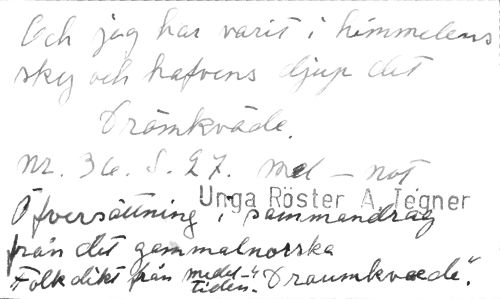 Och jag har varit i himmelens
sky och hafvens djup det
Drömkväde.
Nr. 36. S. 27. med - not
Unga Röster A. Tegner
Öfversättning i sammandrag
från det gammalnorska
Folkdikt från medel-
tiden. "Draumkvæde".